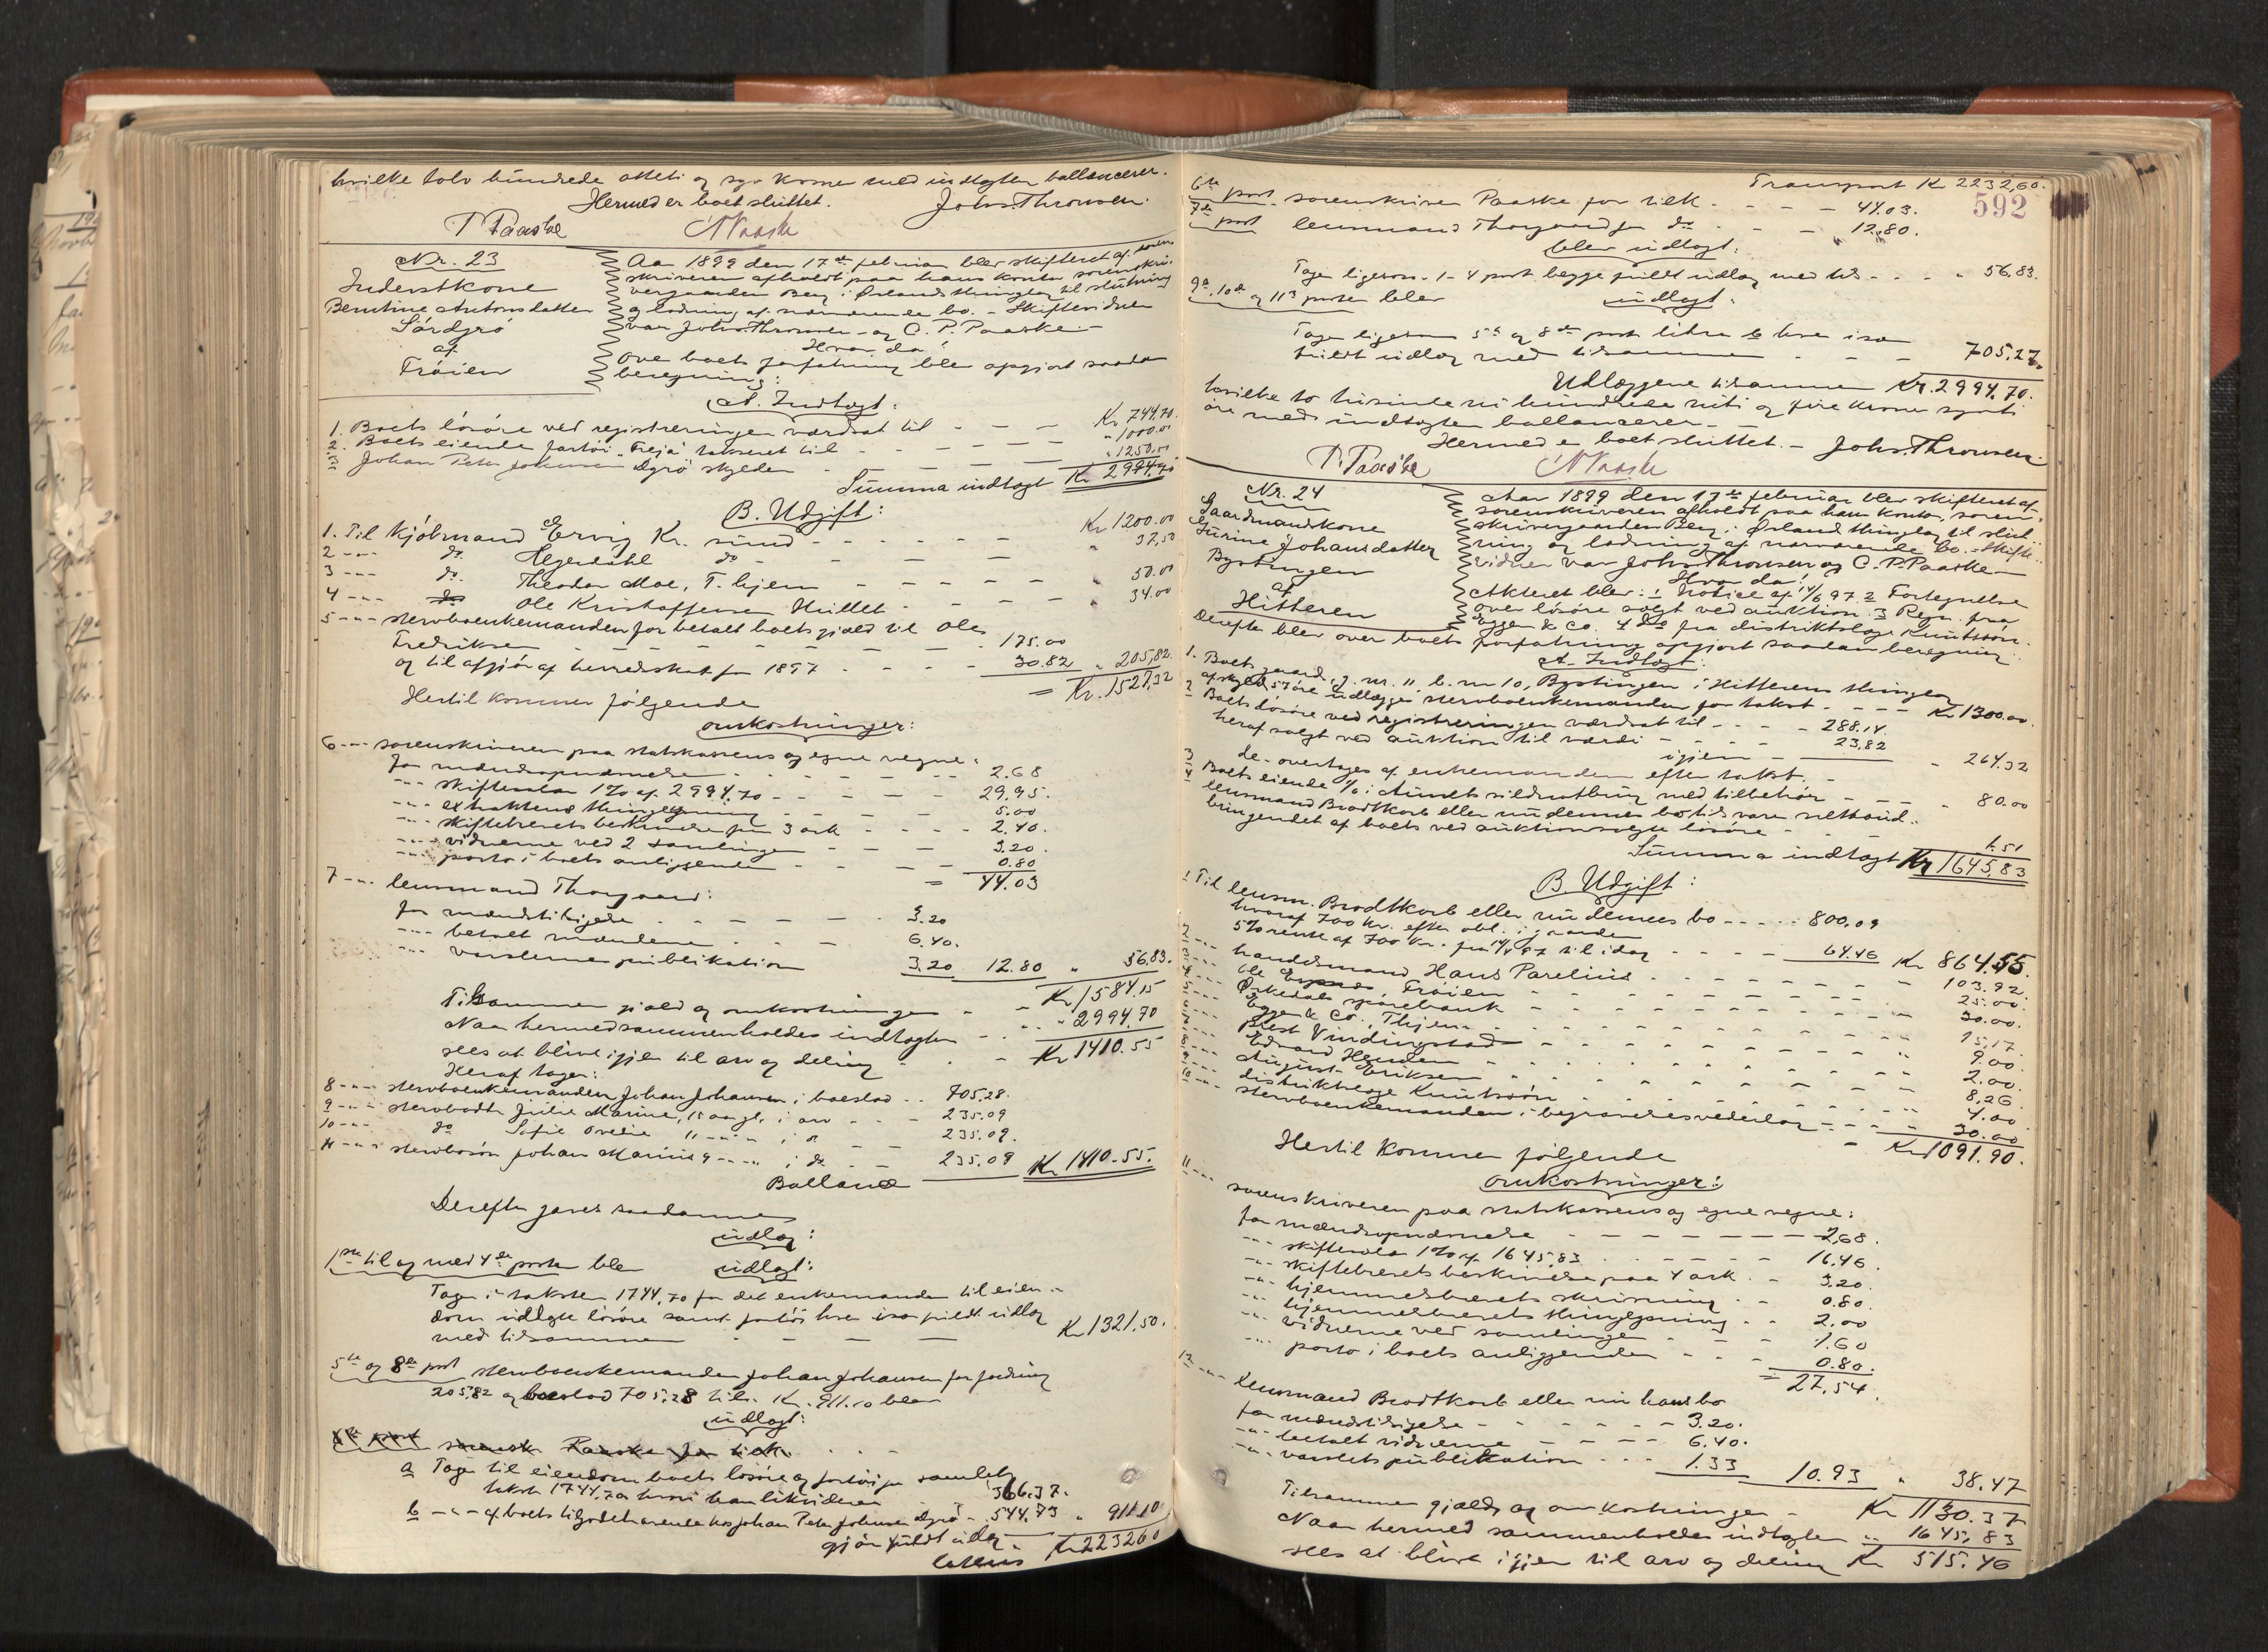 hvilke tolv hundrede otteti og syv kroner med indtægten ballancerer.
Hermed er boet sluttet.
Johs. Thronsen.
P. Paaske
N Paaske
Nr. 23
Inderstkone
Berntine Antonsdatter
Sördyrö
af
Fröien
Aar 1899 den 17de februar blev skifteret af soren-
skriveren afholdt paa hans kontor sorenskri-
vergaarden Berg i Ørlands thinglag til slutning
og lodning af nærværende bo. - Skiftevidner
var Johs. Thronsen og C. P. Paaske -
Hvor da!
Over boets forfatning blev opgjort saadan
beregning:
A. Indtægt:
1. Boets lösöre ved registreringen værdsat til - - - Kr 744.70.
2. Boets eiende fartöi "Freja" takseret til - - - " 1000.00
3 Johan Peter Johansen Dyrö skylden - - - " 1250.00
Summa indtægt Kr 2994.70
B. Udgift:
1. Til kjöbmand Ervig Kr. sund - - - Kr 1200.00
2 -"- do. Hegerdahl do - - - " 37,50
3 -"- do. Theodor Moe, T. hjem - - - " 50.00
4 -"- Ole Kristoffersen Hullet - - - " 34.00
5 -"- stervboenkemanden for betalt boets gjæld til Ole
Fredriksen - - - 175.00
og til afgjör af herredskat for 1897 - - - 30.82 " 205,82.
= Kr. 1527,32
Hertil kommer følgende
omkostninger:
6 -"- sorenskriveren paa statskassens og egne vegne:
for mændsopnævnelse - - - 2.68
-"- skiftesalær 1% af 2994.70 - - - 29.95.
-"- extraktens thinglysning - - - 5.00
-"- skiftebrevets beskrivelse paa 3 ark - - - 2.40.
-"- vidnerne ved 2 samlinger - - - 3.20.
-"- porto i boets anliggender - - - 0.80
= 44.03
7 -"- lensmand Thorgaard:
for mændstilsigelse - - - 3.20
-"- betalt mændene - - - 6.40.
-"- varslernes publikation 3.20 12.80 " 56.83.
Tilsammen gjæld og omkostninger - - Kr 1584.15
Naar hermed sammenholdes indtægten - - " 2994.70
sees at blive igjen til arv og deling - - Kr 1410.55
Heraf tager:
8 -"- stervboenkemanden Johan Johansen i boeslod - - 705.28.
9 -"- stervbodtr Julie Marine, 15 aar gl. i arv - - - 235.09
10 -"- do Sofie Ovelie 11 -"- i do - - 235.09.
11 -"- stervbosön Johan Marius 9 -"- i do - - 235.09 Kr 1410.55.
Ballance
Derefter gjöres saadanne
udlæg:
1ste til og med 4de poster blev udlagt:
Tager i taksten 1744,70 for det enkemanden til eien-
dom udlagte lösöre samt fartöi hver især fuldt udlæg
med tilsammen - - - Kr 1321.50.
5te og 8de post stervboenkemanden Johan Johansen for fordring
205,82 og boeslod 705.28 tils. Kr. 911.10 blev
udlagt:
a Tager til eiendom boets lösöre og fartöi for samlet
takst 1744,70 hvori han likviderer 366.37.
b -"- af boets tilgodehavende hos Johan Peter Johnsen Dyrö - 544.73 " 911.10
gjör fuldt udlæg.
Latus Kr 2232.60
592
Transport Kr 2232,60.
6te post sorenskriver Paaske for tilk. - - - 44.03.
7de post lensmand Thorgaard for do - - - 12.80.
blev udlagt:
Tager ligesom 1-4 post begge fuldt udlæg med tils - - - " 56.83.
9de, 10de og 11te poster blev udlagt:
Tager ligesom 5te og 8de post litra b hver især
fuldt udlæg med tilsammen - - - 705.27.
Udlæggene tilsammen Kr. 2994.70.
hvilke to tusinde ni hundrede niti og fire kroner sytti
öre med indtægten ballancerer. -
Hermed er boet sluttet. - Johs. Thronsen.
P. Paaske
N Paaske
Nr. 24
Gaardmandskone
Gurine Johansdatter
Bystingen
af
Hitteren
Aar 1899 den 17de februar blev skifteret af
sorenskriveren afholdt paa hans kontor, soren-
skrivergaarden Berg i Ørland thinglag til slut-
ning og lodning af nærværende bo. - Skifte-
vidner var Johs. Thronsen og C. P. Paaske -
Hvor da!
Akteret blev: 1 Notice af 14/6 97. 2 Fortegnelse
over lösöre solgt ved auktion. 3 Regn. fra
Egge & Co. 4 do fra distriktslæge Knutssön.
Derefter blev over boets forfatning opgjort saadan beregning
A. Indtægt:
1. Boets gaard, g. nr. 11 b. nr 10, Bystingen i Hitterens thinglag
af skyld 57 öre udlægges stervboenkemanden for takst - - - Kr 1300.00.
2 Boets lösöre ved registreringen værdsat til - - - 288.14.
heraf solgt ved auktion til værdi - - - 23,82
igjen - - - " 264.32
de overtages af enkemanden efter takst. -
3 Boets eiende i sildnotbrug med tilbehör - - - " 80.00
4 lensmand Brodtkorb eller nu dennes bo tilsvarer nettoud-
bringendet af boets ved auktion solgte lösöre - - - 1.51
Summa indtægt Kr 1645,83
B. Udgift:
1 Til lensm. Brodtkorb eller nu dennes bo - - - 800.09
hvoraf 700 kr. efter obl. i gaarden
5% rente af 700 Kr. fra 14/4 97 til idag - - - 64.46 Kr 864.55.
2 -"- handelsmand Hans Parelius - - - 103.92.
3 -"- Ole Fröien - - - 25.00.
4 -"- Ørkedals sparebank - - - 30.00.
5 -"- Egge & Co., Thjem - - - 15,17
6 -"- Vindingstad - - - 9.00
7 -"- Edvard - - - 2.00.
8 -"- August Eriksen - - - 8,26
9 -"- distriktslæge Knutssön - - - 4.00
10 -"- stervboenkemanden i begravelsesvederlag - - - 30.00
= Kr 1091.90.
Hertil kommer følgende
omkostninger:
11 -"- sorenskriveren paa statskassens og egne vegne:
for mændsopnævnelse - - - 2,68.
-"- skiftesalær 1% af 1645,83 - - - 16.46.
-"- skiftebrevets beskrivelse paa 4 ark - - - 3.20.
-"- hjemmelsbrevets skrivning - - 0.80.
-"- hjemmelsbrevets thinglysning - - 2.00
-"- vidnerne ved samlingen - - - 1.60
-"- porto i boets anliggender - - - 0.80.
= 27,54.
12 -"- lensmand Brodtkorb eller nu hans bo
for mændstilsigelse - - - 3.20.
-"- betalt vidnerne - - - 6.40.
-"- varslets publikation - - - 1.33 10.93 " 38.47
Tilsammen gjæld og omkostninger - Kr 1130.37
Naar hermed sammenholdes indtægten " 1645,83
sees at blive igjen til arv og deling Kr 515.46